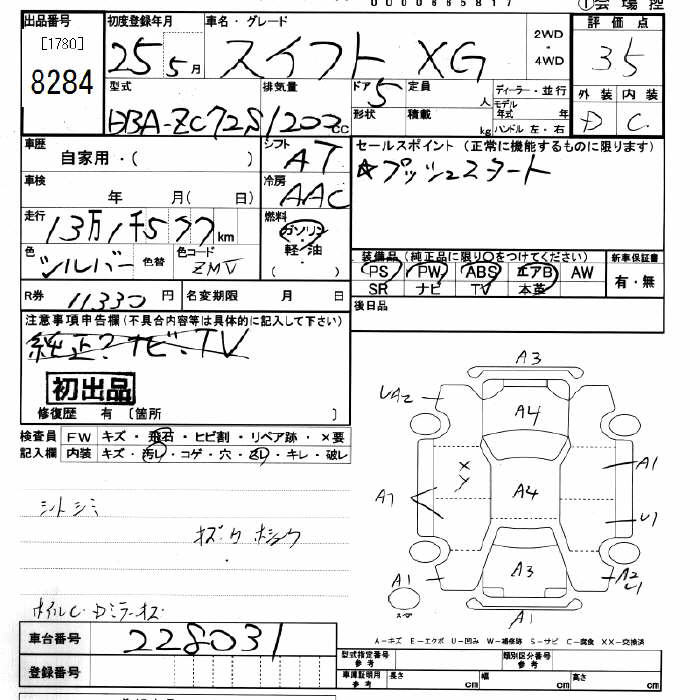 0000665817
①会場控
出品番号 初度登録年月 車名・グレード 評価点
[1780]
8284
25年5月 スイフト XG 2WD・4WD 35
型式 排気量 ドア 定員 ディーラー・並行 外装 内装
DBA-ZC72S 1200cc 5 人 モデル年式 年 D C
形状 積載 kg ハンドル 左・右
車歴 自家用・( ) シフト AT
セールスポイント (正常に機能するものに限ります)
☆プッシュスタート
車検 年 月( 日) 冷房 AAC
走行 13万1千577km 燃料 ガソリン・軽・油
色 シルバー 色替 色コード ZMV
装備品(純正品に限り○をつけてください) 新車保証書
PS PW ABS エアB AW 有・無
SR ナビ TV 本革
R券 11330円 名変期限 月 日
後日品
注意事項申告欄(不具合内容等は具体的に記入して下さい)
純正?ナビ・TV
初出品
修復歴 有〔箇所 〕
検査員 FW キズ・飛石・ヒビ割・リペア跡・×要
記入欄 内装 キズ・汚レ・コゲ・穴・スレ・キレ・破レ
シートシミ
ホイルC・Dミラーキズ
A3
A2
A4
A1
A4
A7
U1
A3
A1
A2
U1
A1
A-キズ E-エクボ U-凹み W-補修跡 S-サビ C-腐食 XX-交換済
車台番号 228031
登録番号
型式指定番号 参考 類別区分番号 参考
車庫証明用 参考 長さ cm 幅 cm 高さ cm